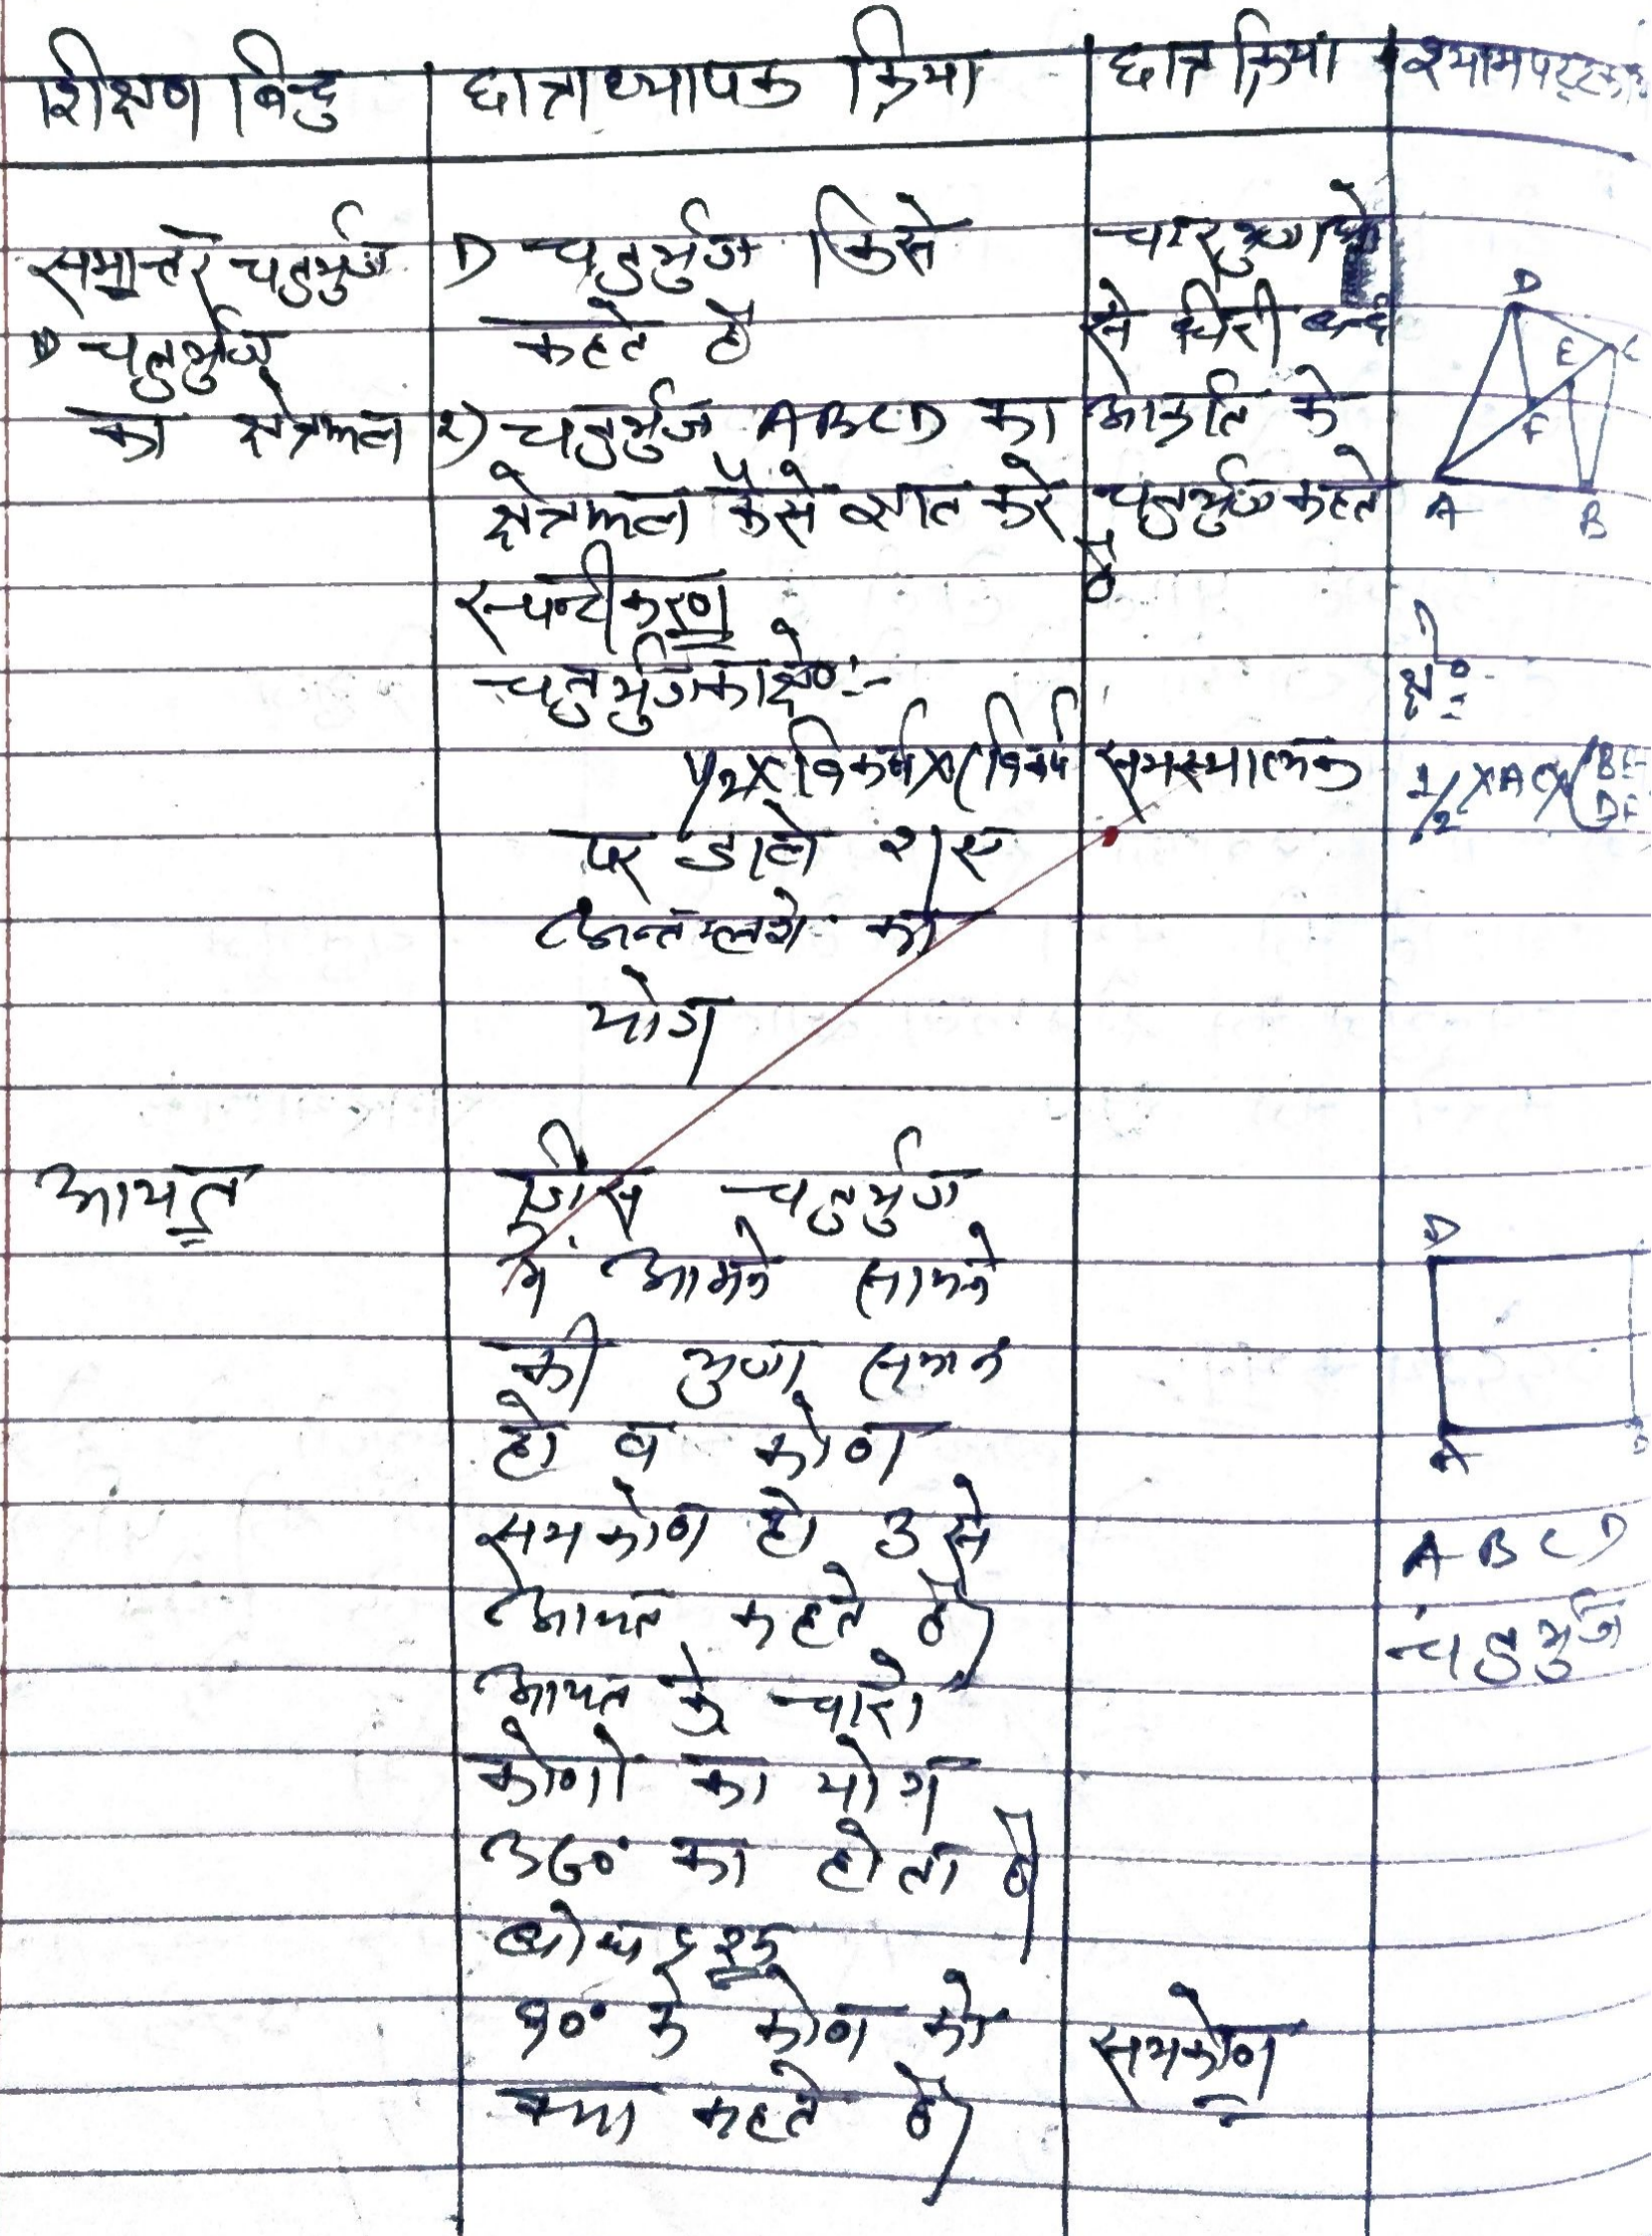 शिक्षण बिन्दु
छात्राध्यापक क्रिया
छात्र क्रिया
श्यामपट्ट
समान्तर चतुर्भुज
1) चतुर्भुज
का क्षेत्रफल
1) चतुर्भुज किसे
कहते है
2) चतुर्भुज ABCD का
क्षेत्रफल कैसे ज्ञात करे
स्पष्टीकरण
चतुर्भुज का क्षे० :-
1/2 X विकर्ण X (विकर्ण
पर डाले गए
का
योग
चार भुजाओ
से घिरी बन्द
आकृति के
चतुर्भुज कहते
है
समस्यात्मक
D
E C
F
A B
क्षे० =
1/2 X AC X (BE
DF
आयत
जिस चतुर्भुज
मे आमने सामने
की भुजा समान
हो व कोण
समकोण हो उसे
आयत कहते है।
आयत के चारो
कोणो का योग
360° का होता है।
बोध प्रश्न
90° के कोण को
क्या कहते है।
समकोण
D
A B
A B C D
चतुर्भुज